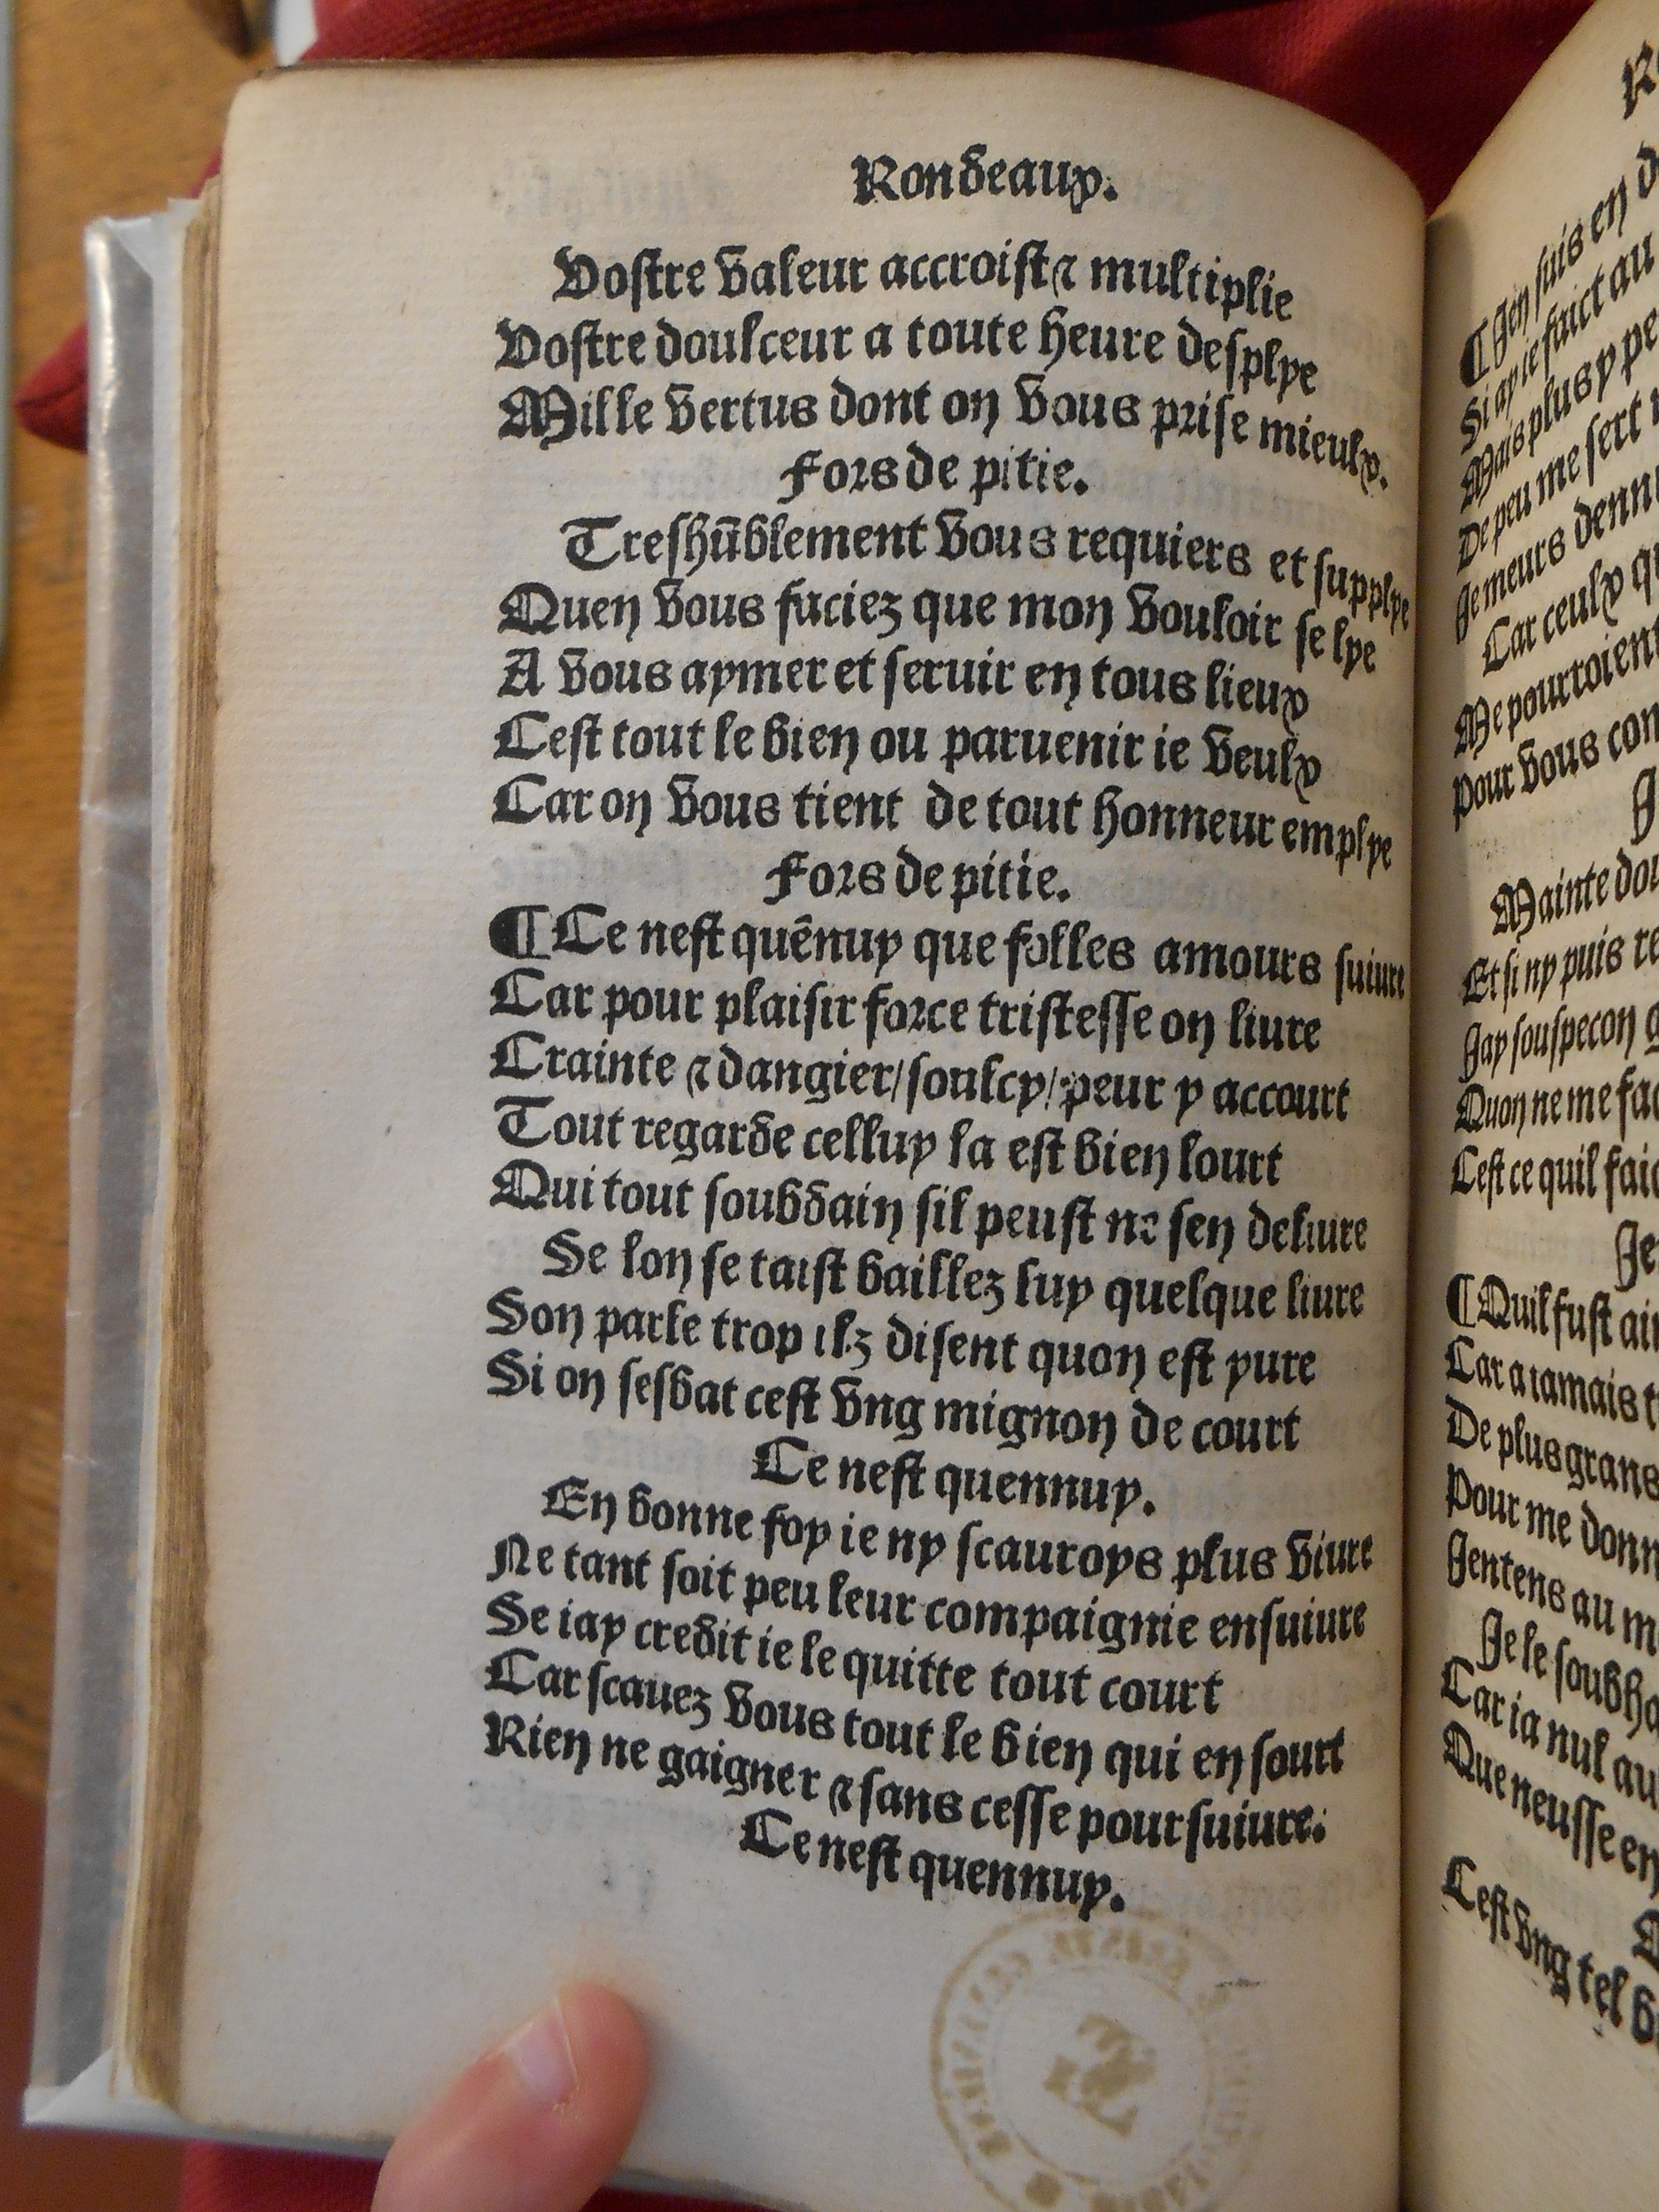 Rondeaux.
Vostre valeur accroist ⁊ multiplie
Vostre doulceur a toute heure desplye
Mille vertus dont on vous prise mieulx.
Fors de pitie.
Treshūblement vous requiers et supplye
Quen vous faciez que mon vouloir se lye
A vous aymer et seruir en tous lieux
Cest tout le bien ou paruenir ie veulx
Car on vous tient de tout honneur emplye
Fors de pitie.
¶ Ce nest quēnuy que folles amours suiure
Car pour plaisir force tristesse on liure
Crainte ⁊ dangier/soulcy/peur y accourt
Tout regarde celluy la est bien lourt
Qui tout soubdain sil peust ne sen deliure
Se lon se taist baillez luy quelque liure
Son parle trop ilz disent quon est yure
Si on sesbat cest vng mignon de court
Ce nest quennuy.
En bonne foy ie ny scauroys plus viure
Ne tant soit peu leur compaignie ensuiure
Se iay credit ie le quitte tout court
Car scauez vous tout le bien qui en sourt
Rien ne gaigner ⁊ sans cesse poursuiure.
Ce nest quennuy.
¶ Jen suis en
Si ay ie faict au
Mais plus y
De peu me sert
Je meurs
Car ceulx
Me pourroient
Pour vous
Mainte
Et si ny puis
Jay souspecon
Quon ne me
Cest ce quil
Je
¶ Quil fust
Car a iamais
De plus grans
Pour me
Jentens au
Je le
Car ia nul au
Que neusse
Cest vng tel